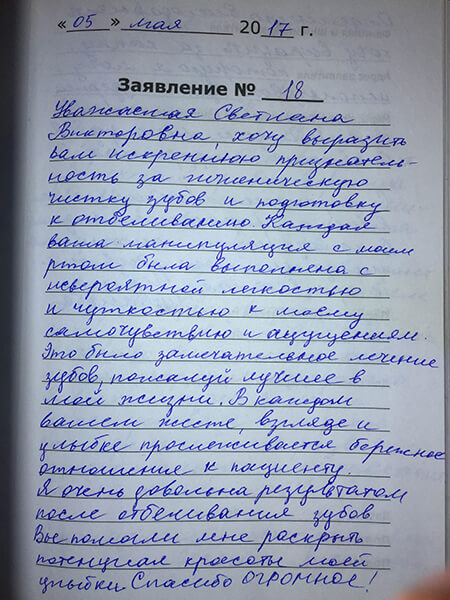 « 05 » мая 2017 г.
Заявление № 18
Уважаемая Светлана
Викторовна, хочу выразить
вам искреннюю признатель-
ность за гигиеническую
чистку зубов и подготовку
к отбеливанию. Каждая
ваша манипуляция с моим
ртом была выполнена с
невероятной легкостью
и чуткостью к моему
самочувствию и ощущениям.
Это было замечательное лечение
зубов, пожалуй лучшее в
моей жизни. В каждом
вашем жесте, взгляде и
улыбке прослеживается бережное
отношение к пациенту.
Я очень довольна результатом
после отбеливания зубов.
Вы помогли мне раскрыть
потенциал красоты моей
улыбки. Спасибо огромное!